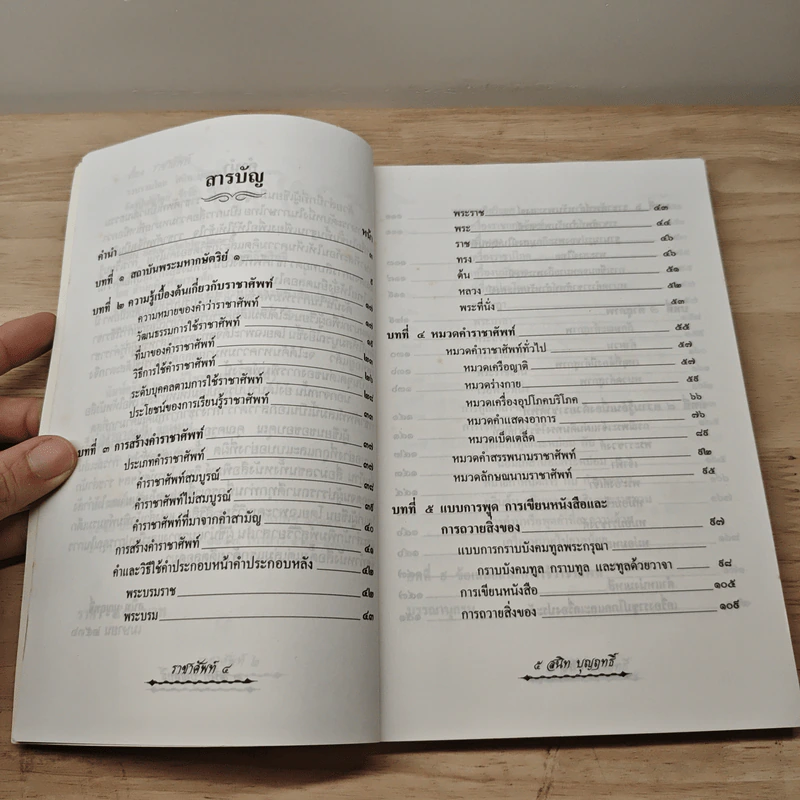 สารบัญ
หน้า
คำนำ ๑
บทที่ ๑ สถาบันพระมหากษัตริย์ ๑ ๙
บทที่ ๒ ความรู้เบื้องต้นเกี่ยวกับราชาศัพท์
ความหมายของคำว่าราชาศัพท์
วัฒนธรรมการใช้ราชาศัพท์
ที่มาของคำราชาศัพท์
วิธีการใช้คำราชาศัพท์ ๒๓
ระดับบุคคลตามการใช้ราชาศัพท์ ๒๖
ประโยชน์ของการเรียนรู้ราชาศัพท์
บทที่ ๓ การสร้างคำราชาศัพท์ ๓๗
ประเภทคำราชาศัพท์ ๓๗
คำราชาศัพท์สมบูรณ์ ๓๘
คำราชาศัพท์ไม่สมบูรณ์ ๓๙
คำราชาศัพท์ที่มาจากคำสามัญ ๔๐
การสร้างคำราชาศัพท์ ๔๑
คำและวิธีใช้คำประกอบหน้าคำประกอบหลัง ๔๒
พระบรมราช ๔๒
พระบรม ๔๓
ราชาศัพท์ ๔
พระราช ๔๓
พระ ๔๔
ราช ๔๖
ทรง ๔๖
ต้น ๕๑
หลวง ๕๒
พระที่นั่ง ๕๓
บทที่ ๔ หมวดคำราชาศัพท์ ๕๕
หมวดคำราชาศัพท์ทั่วไป ๕๗
หมวดเครือญาติ ๕๗
หมวดร่างกาย ๕๙
หมวดเครื่องอุปโภคบริโภค ๖๖
หมวดคำแสดงอาการ ๗๖
หมวดเบ็ดเตล็ด ๘๙
หมวดคำสรรพนามราชาศัพท์ ๙๒
หมวดลักษณนามราชาศัพท์ ๙๕
บทที่ ๕ แบบการพูด การเขียนหนังสือและ
การถวายสิ่งของ ๙๗
แบบการกราบบังคมทูลพระกรุณา
กราบบังคมทูล กราบทูล และทูลด้วยวาจา ๙๘
การเขียนหนังสือ ๑๐๕
การถวายสิ่งของ ๑๐๙
๕ สนิท บุญฤทธิ์